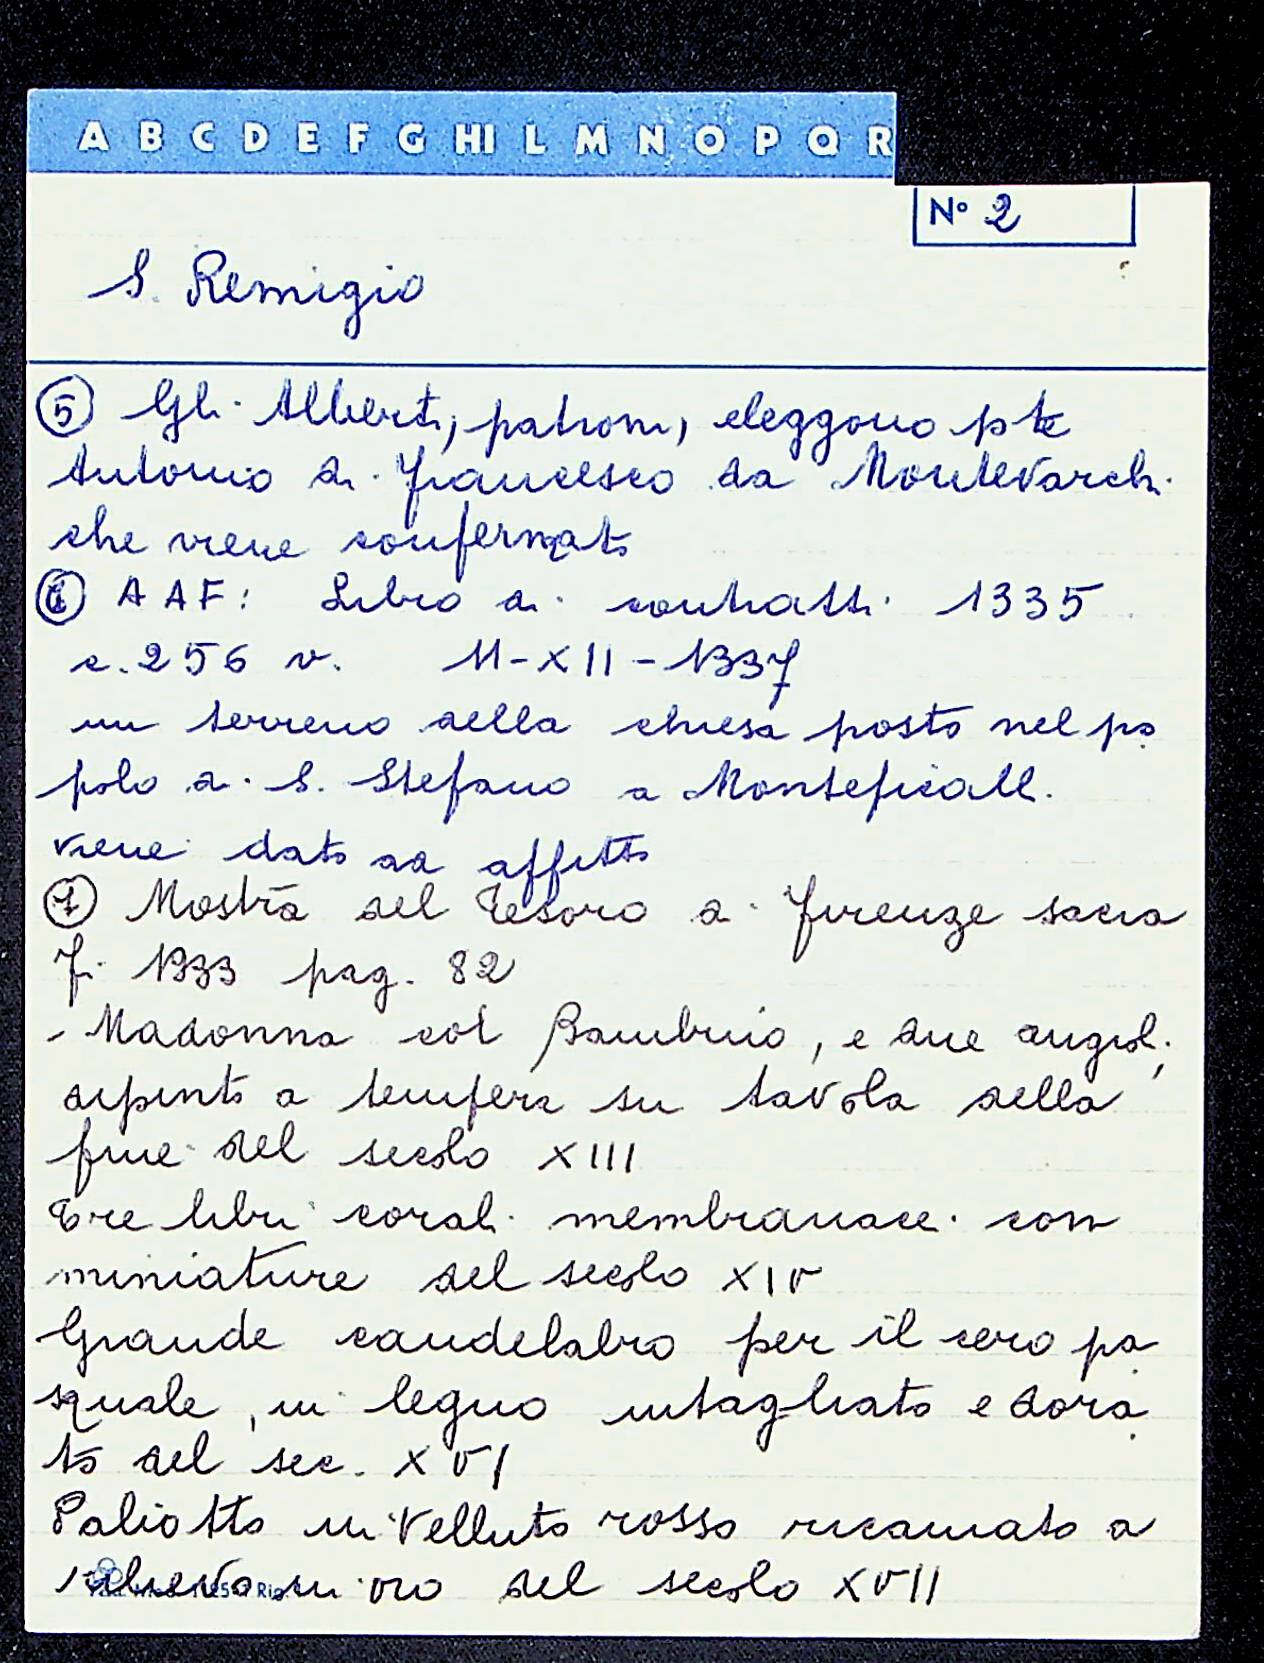 A B C D E F G HI L M N O P Q R
N° 2
S. Remigio
5 Gli Alberti, patroni, eleggono pte
Antonio di Francesco da Montevarchi
che viene confermato
6 AAF: Libro di contratti 1335
c. 256 v. 11-XII-1337
un terreno della chiesa posto nel po
polo di S. Stefano a Monteficalli
viene dato ad affitto
7 Mostra del Tesoro di Firenze sacra
Fi 1933 pag. 82
- Madonna col Bambino, e due angioli,
dipinto a tempera su tavola della
fine del secolo XIII
Tre libri corali membranacei con
miniature del secolo XIV
Grande candelabro per il cero pa
squale, in legno intagliato e dora
to del sec. XVI
Paliotto in velluto rosso ricamato a
rilievo in oro del secolo XVII